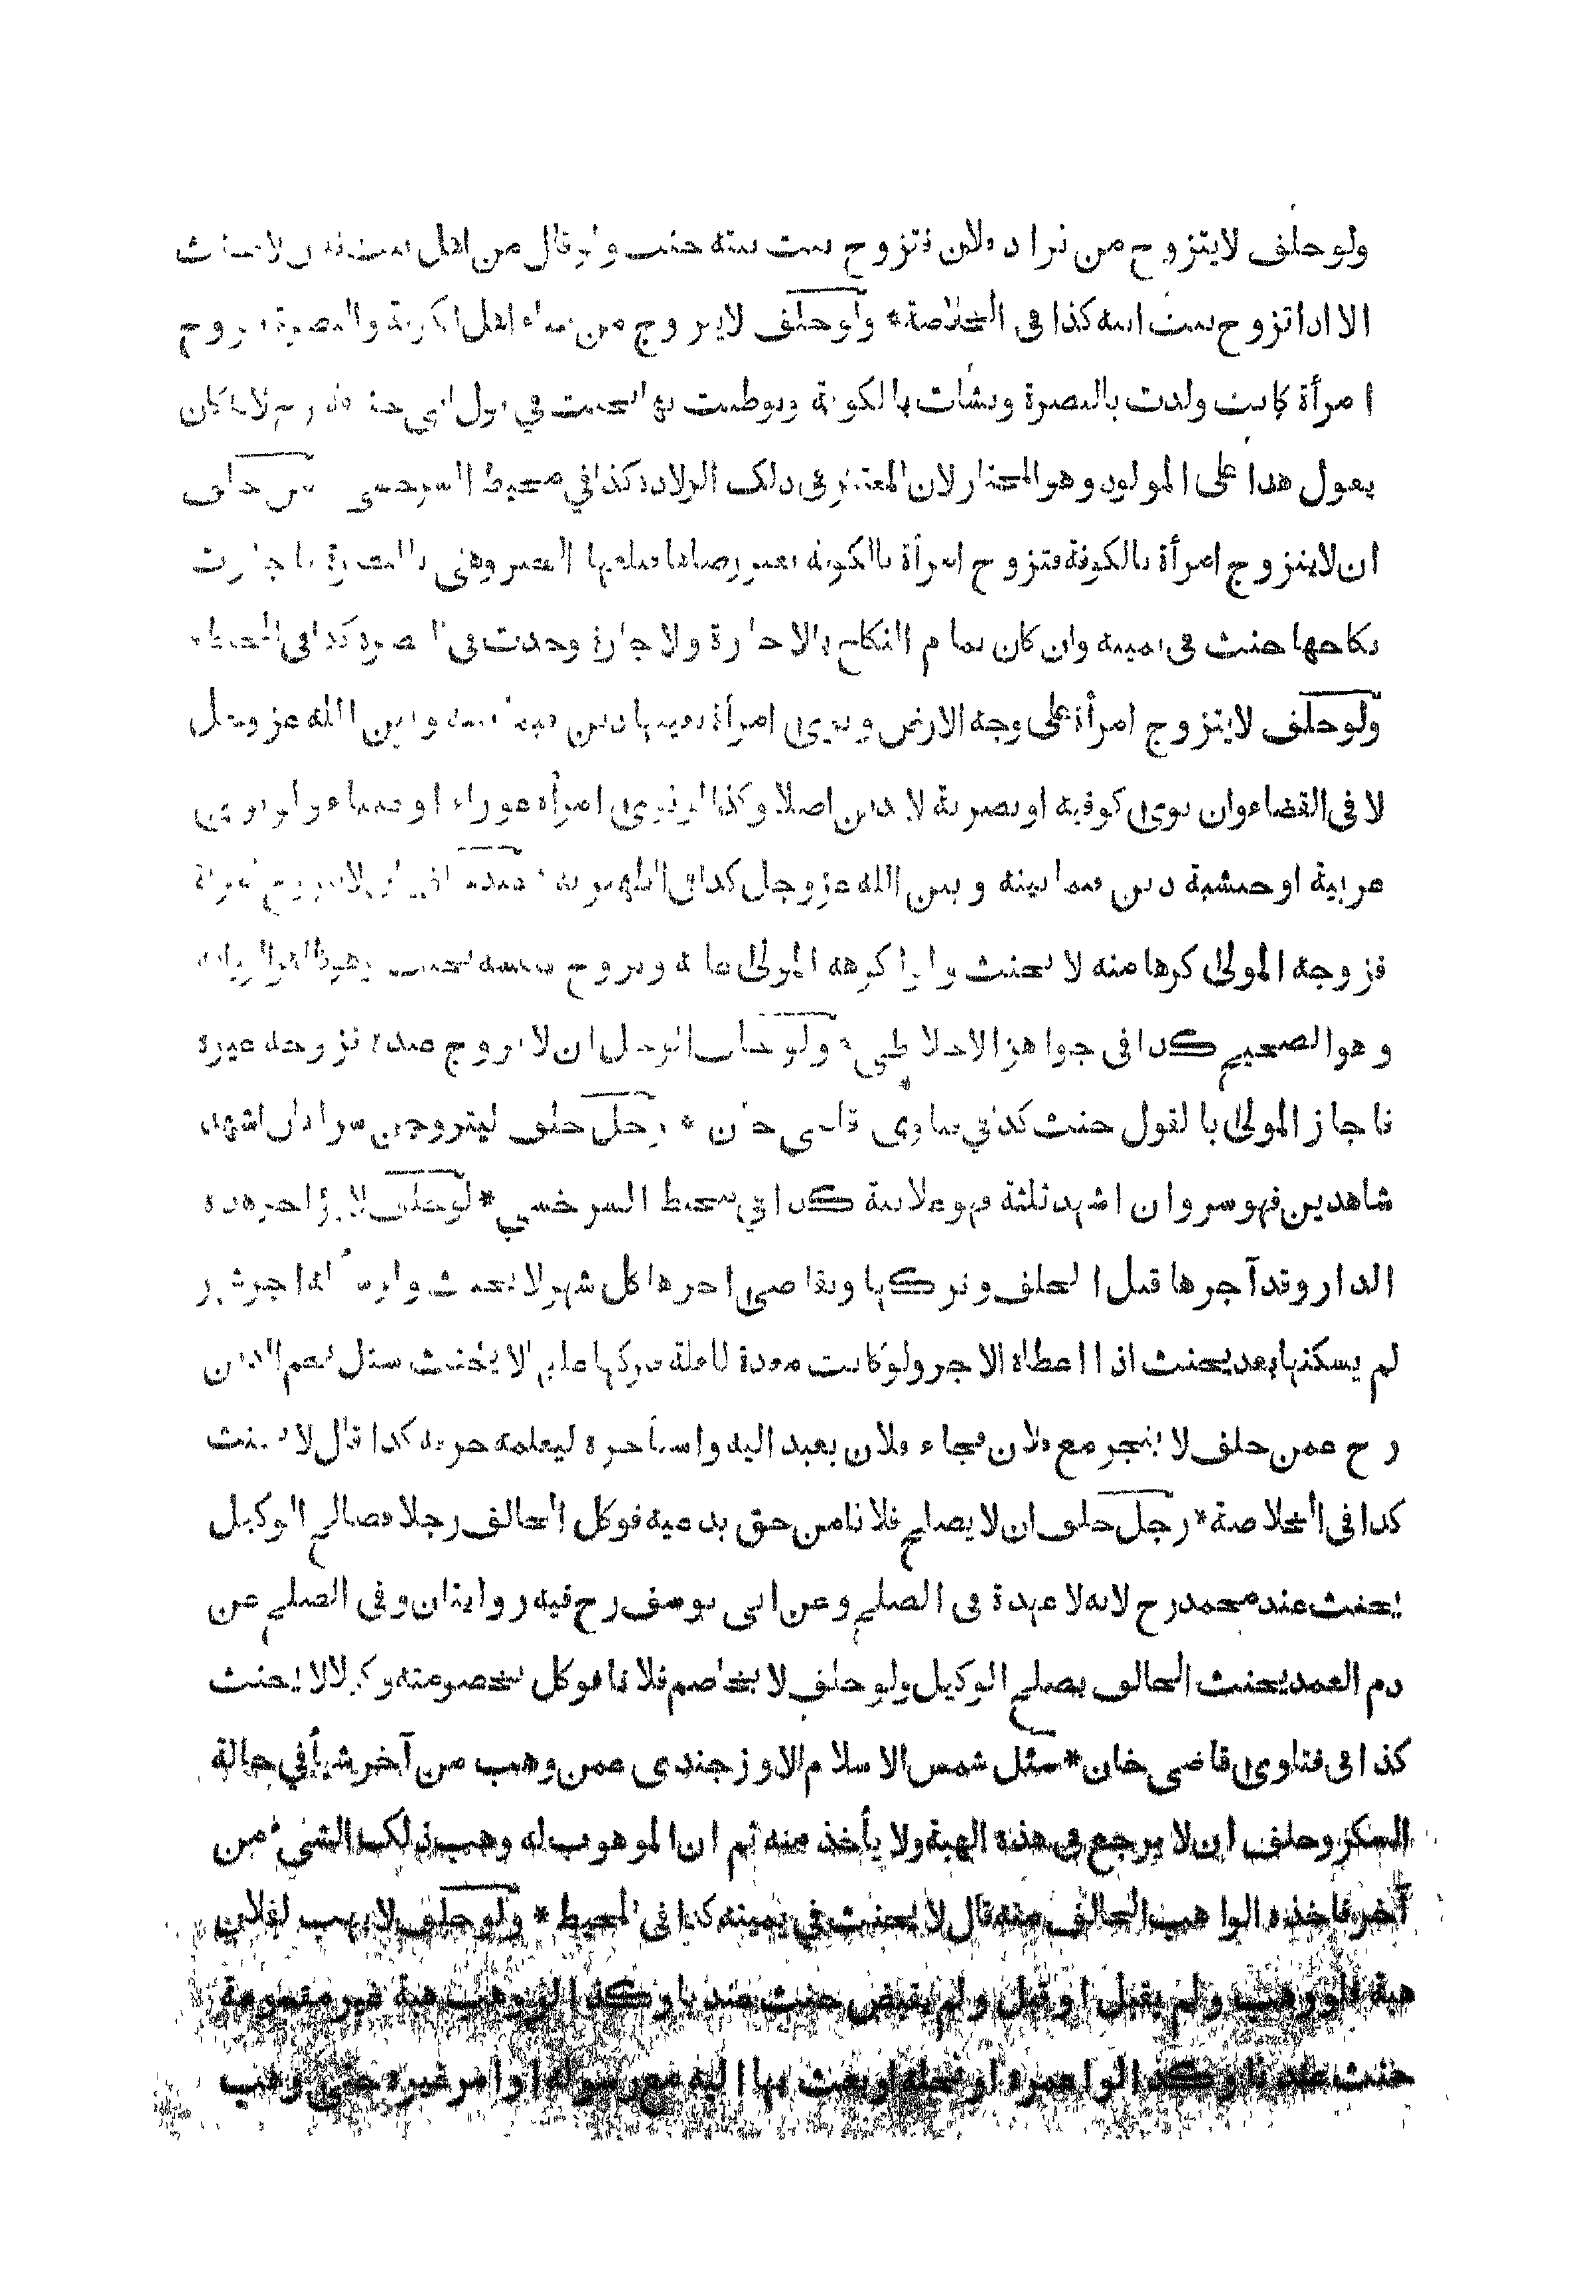 ولو حلف لا يتزوج من نساء فلان فتزوج بنت بنته حنث ولو قال من اهل بيت فلان لا يحنث
الا اذا تزوج بنت ابنه كذا في الخلاصة * ولو حلف لا يتزوج من نساء اهل الكوفة والبصرة فتزوج
امرأة كانت ولدت بالبصرة ونشأت بالكوفة وتوطنت بها يحنث في قول ابي حنيفة رح لانه كان
يقول هذا على المولود وهو المختار لان المعتبر في ذلك الولادة كذا في محيط السرخسي حلف
ان لا يتزوج امرأة بالكوفة فتزوج امرأة بالكوفة بغير رضاها فبلغها الخبر وهي بالبصرة فاجازت
نكاحها حنث في يمينه وان كان تمام النكاح بالاجازة والاجازة وجدت في البصرة كذا في المحيط *
ولو حلف لا يتزوج امرأة على وجه الارض وينوي امرأة بعينها دين فيما بينه وبين الله عز وجل
لا في القضاء وان نوى كوفية او بصرية لا يدين اصلا وكذا لو نوى امرأة عوراء او عمياء ولو نوى
عربية او حبشية دين فيما بينه وبين الله عز وجل كذا في الظهيرية * عبد حلف ان لا يتزوج امرأة
فزوجه المولى كرها منه لا يحنث واذا اكرهه المولى حتى تزوج بنفسه يحنث
وهو الصحيح كذا في جواهر الاخلاطي * ولو حلف الرجل ان لا يزوج عبده فزوجه غيره
فاجاز المولى بالقول حنث كذا في فتاوى قاضي خان * رجل حلف ليتزوجن سرا فان اشهد
شاهدين فهو سر وان اشهد ثلثة فهو علانية كذا في محيط السرخسي * لو حلف لا يؤاجر هذه
الدار وقد آجرها قبل الحلف وتركها وتقاضى اجرها كل شهر لا يحنث ولو سأله اجر شهر
لم يسكنها بعد يحنث اذا اعطاه الاجر ولو كانت معدة للغلة فتركها عليها لا يحنث سئل نجم الدين
رح عمن حلف لا يتجر مع فلان فجاء فلان بعبد اليه واستأجره ليعلمه حرفة كذا قال لا يحنث
كذا في الخلاصة * رجل حلف ان لا يصالح فلانا من حق يدعيه فوكل الحالف رجلا فصالح الوكيل
يحنث عند محمد رح لانه لا عهدة في الصلح وعن ابي يوسف رح فيه روايتان وفي الصلح عن
دم العمد يحنث الحالف بصلح الوكيل ولو حلف لا يخاصم فلانا فوكل بخصومته وكيلا لا يحنث
كذا في فتاوى قاضي خان * سئل شمس الاسلام الاوزجندي عمن وهب من آخر شيأ في حالة
السكر وحلف ان لا يرجع في هذه الهبة ولا يأخذ منه ثم ان الموهوب له وهب ذلك الشئ من
آخر فاخذه الواهب الحالف منه قال لا يحنث في يمينه كذا في المحيط * ولو حلف لا يهب لفلان
هبة فلو وهب ولم يقبل او قبل ولم يقبض حنث عندنا وكذا لو وهب هبة غير مقسومة
حنث عندنا وكذا لو اعمره او نحله او بعث بها اليه مع رسوله او امر غيره حتى وهب